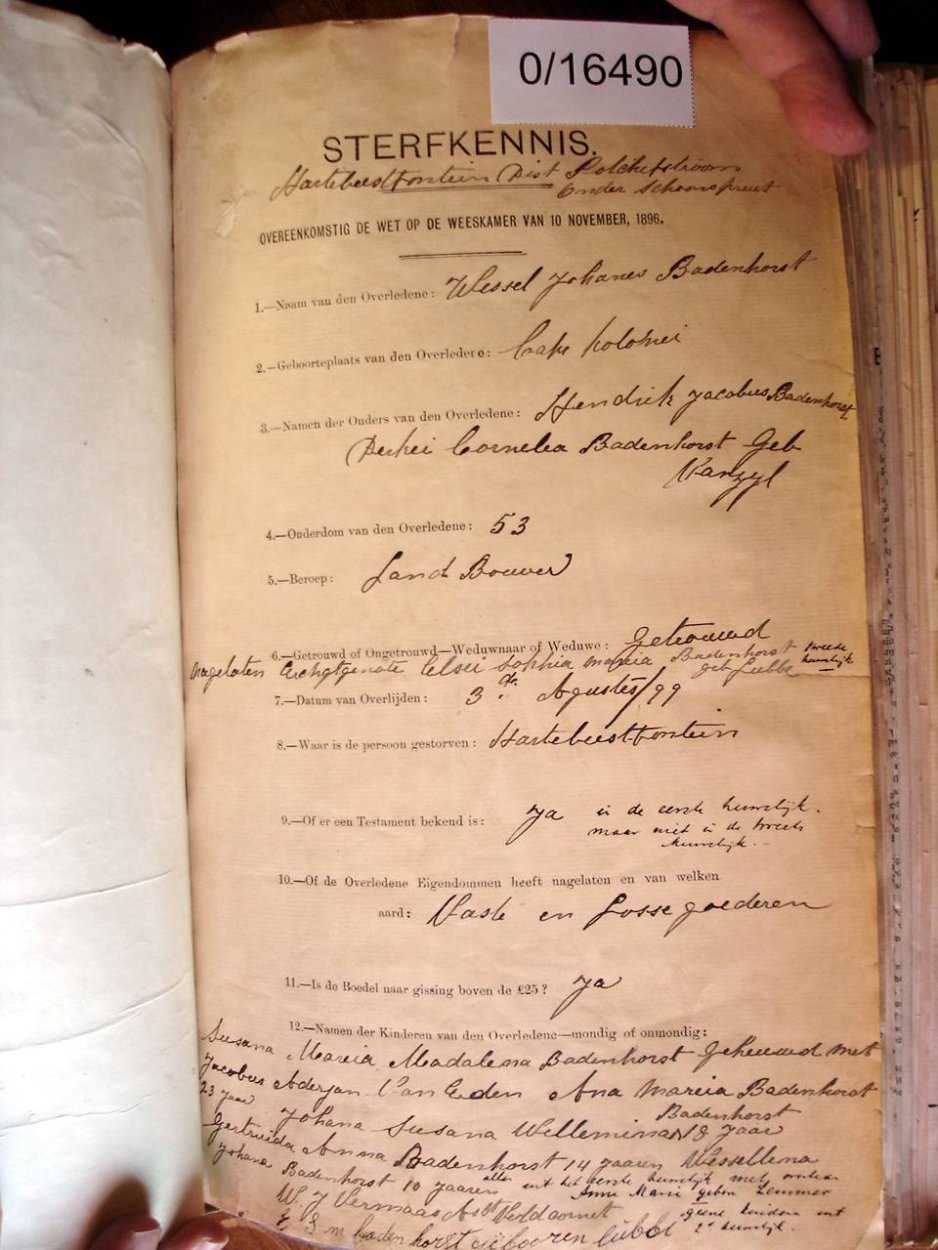 0/16490
STERFKENNIS.
Hartebeestfontein Dist Potchefstroom
Onder Schoonspruit
OVEREENKOMSTIG DE WET OP DE WEESKAMER VAN 10 NOVEMBER, 1896.
1.—Naam van den Overledene: Wessel Johanes Badenhorst
2.—Geboorteplaats van den Overledere: Cape Kolonei
3.—Namen der Ouders van den Overledene: Hendrik Jacobus Badenhorst
Cornelia Badenhorst Geb
Vanzyl
4.—Ouderdom van den Overledene: 53
5.—Beroep: Land Bouwer
6.—Getrouwd of Ongetrouwd—Weduwnaar of Weduwe: Getrouwd
nagelaten Echtgenote Elsei Sophia Mareia Badenhorst tweede
geb Lubbe huwelijk
7.—Datum van Overlijden: 3 de Agustes/99
8.—Waar is de persoon gestorven: Hartebeestfontein
9.—Of er een Testament bekend is: Ja in de eerste huwelijk.
maar niet in de tweede
huwelijk.—
10.—Of de Overledene Eigendommen heeft nagelaten en van welken
aard: Vaste en Losse goederen
11.—Is de Boedel naar gissing boven de £25? Ja
12.—Namen der Kinderen van den Overledene—mondig of onmondig:
Susana Mareia Madalena Badenhorst Geheuwd met
Jacobus Aderjan Van Eeden Ana Mareia Badenhorst
23 Jaar Johana Susana Wellemina Badenhorst 18 Jaar
Gertruida Anna Badenhorst 14 jaaren Wessellena
Johana Badenhorst 10 jaaren allen uit het eerste huwelijk met
Anna Maria geboren Lemmer
W. J. Vermaas Asst Veldcornet geene kinderen uit
E S M Badenhorst gebooren Lubbe 2e huwelijk.